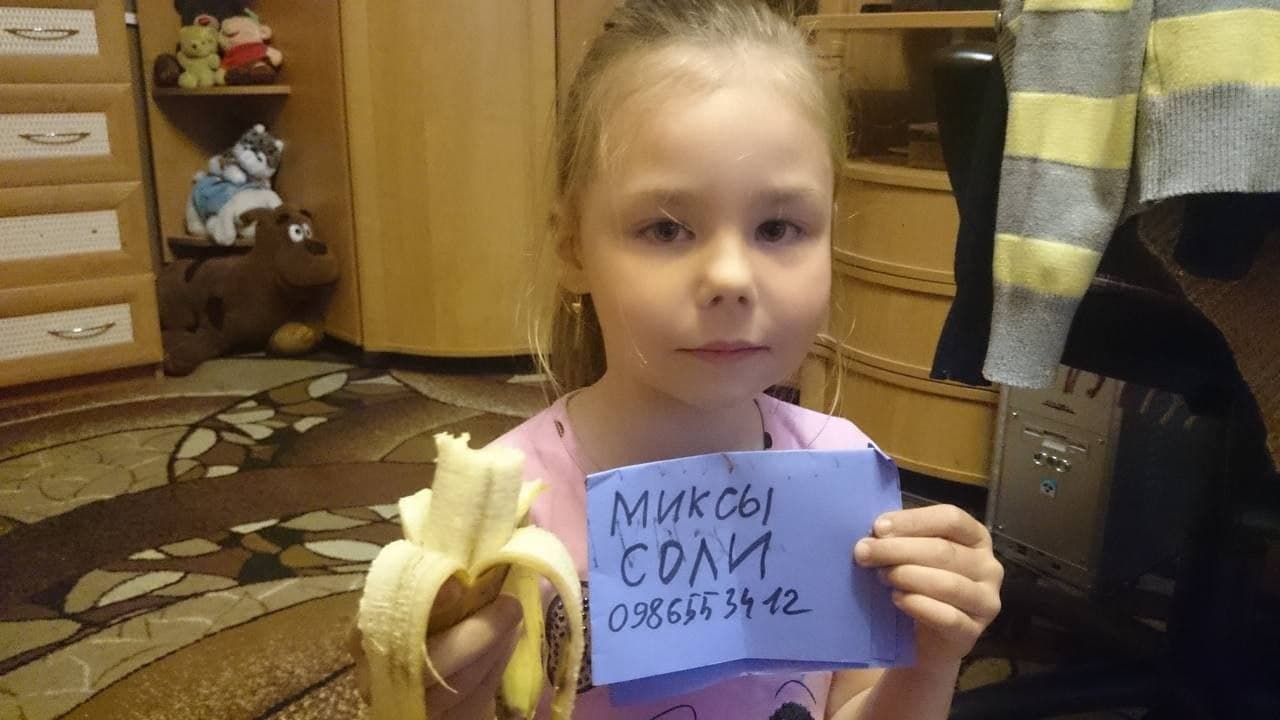 МИКСЫ
СОЛИ
0986553412